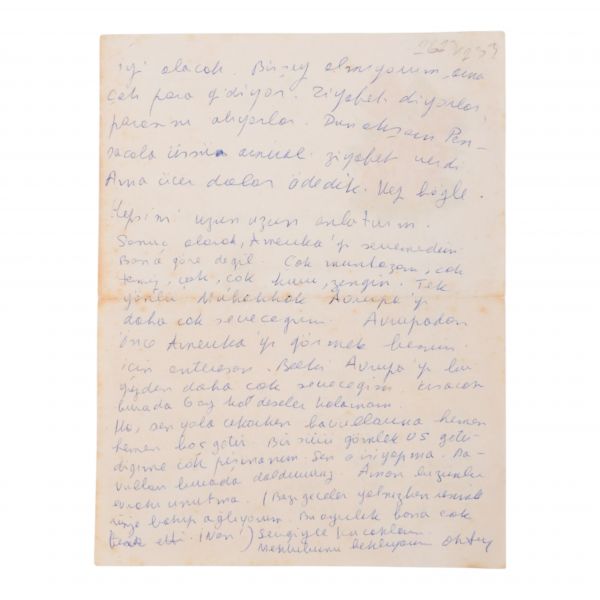 iyi olacak. Birşey almıyorum ama
çok para gidiyor. Ziyafet diyorlar
parasını alıyorlar. Dün akşam Pen-
sacola üssü amiral ziyafet verdi
Ama üçer dolar ödedik. Hep böyle.
Hepsini uzun uzun anlatırım.
Sonuç olarak, Amerika'yı sevemedim
Bana göre değil. Çok muntazam, çok
temiz, çok, çok kuru, zengin. Tek
Muhakkak Avrupa'yı
daha çok seveceğim. Avrupadan
önce Amerika'yı görmek benim
için enteresan. Belki Avrupa'yı bu
yüzden daha çok seveceğim. Kısacası
burada 6 ay kal deseler kalamam.
Ha, sen yola çıkarken bavullarına hemen
hemen boş getir. Bir sürü gömlek vs getir
diğime çok pişmanım. Sen o işi yapma. Ba-
vulları burada doldururuz. Aman lüzumlu
evrakı unutma. (Bazı geceler yalnızken
bakıp ağlıyorum. Bu ayrılık bana çok
etti. Sevgiyle kucaklarım.
Mektubunu bekliyorum Oktay